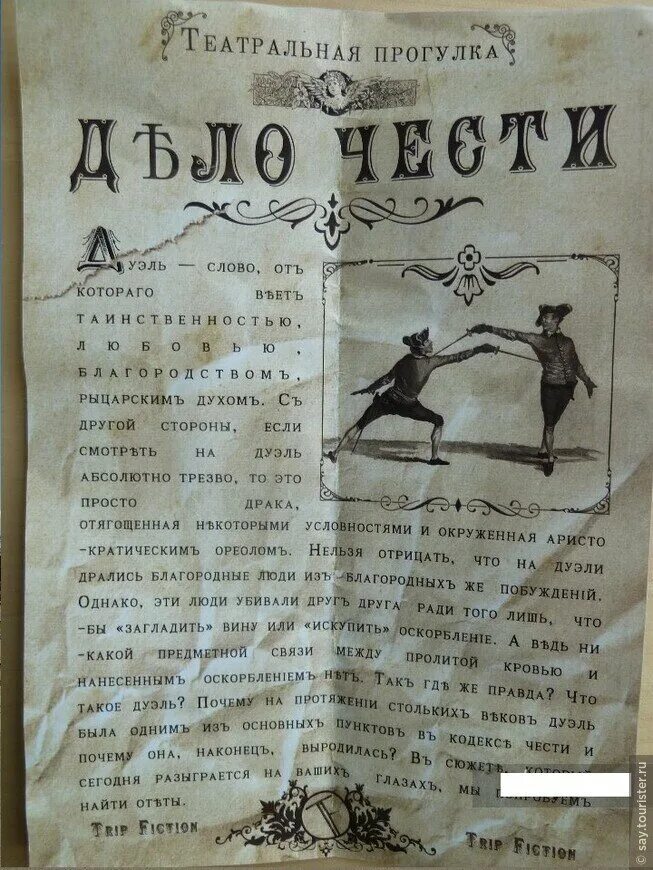 Театральная прогулка
Дѣло чести
Дуэль — слово, отъ
котораго вѣетъ
таинственностью,
любовью,
благородствомъ,
рыцарскимъ духомъ. Съ
другой стороны, если
смотрѣть на дуэль
абсолютно трезво, то это
просто драка,
отягощенная нѣкоторыми условностями и окруженная аристо
-кратическимъ ореоломъ. Нельзя отрицать, что на дуэли
дрались благородные люди изъ благородныхъ же побужденій.
Однако, эти люди убивали другъ друга ради того лишь, что
-бы «загладить» вину или «искупить» оскорбленіе. А вѣдь ни
-какой предметной связи между пролитой кровью и
нанесеннымъ оскорбленіемъ нѣтъ. Такъ гдѣ же правда? Что
такое дуэль? Почему на протяженіи столькихъ вѣковъ дуэль
была однимъ изъ основныхъ пунктовъ въ кодексѣ чести и
почему она, наконецъ, выродилась? Въ сюжетѣ,
сегодня разыграется на вашихъ глазахъ, мы
найти отѣты.
Trip Fiction
T
Trip Fiction
© say.tourister.ru